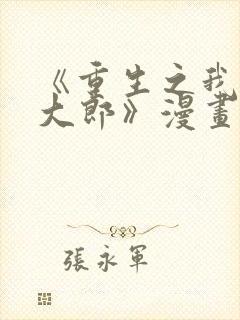 《重生之我
大郎》漫畫
張永軍